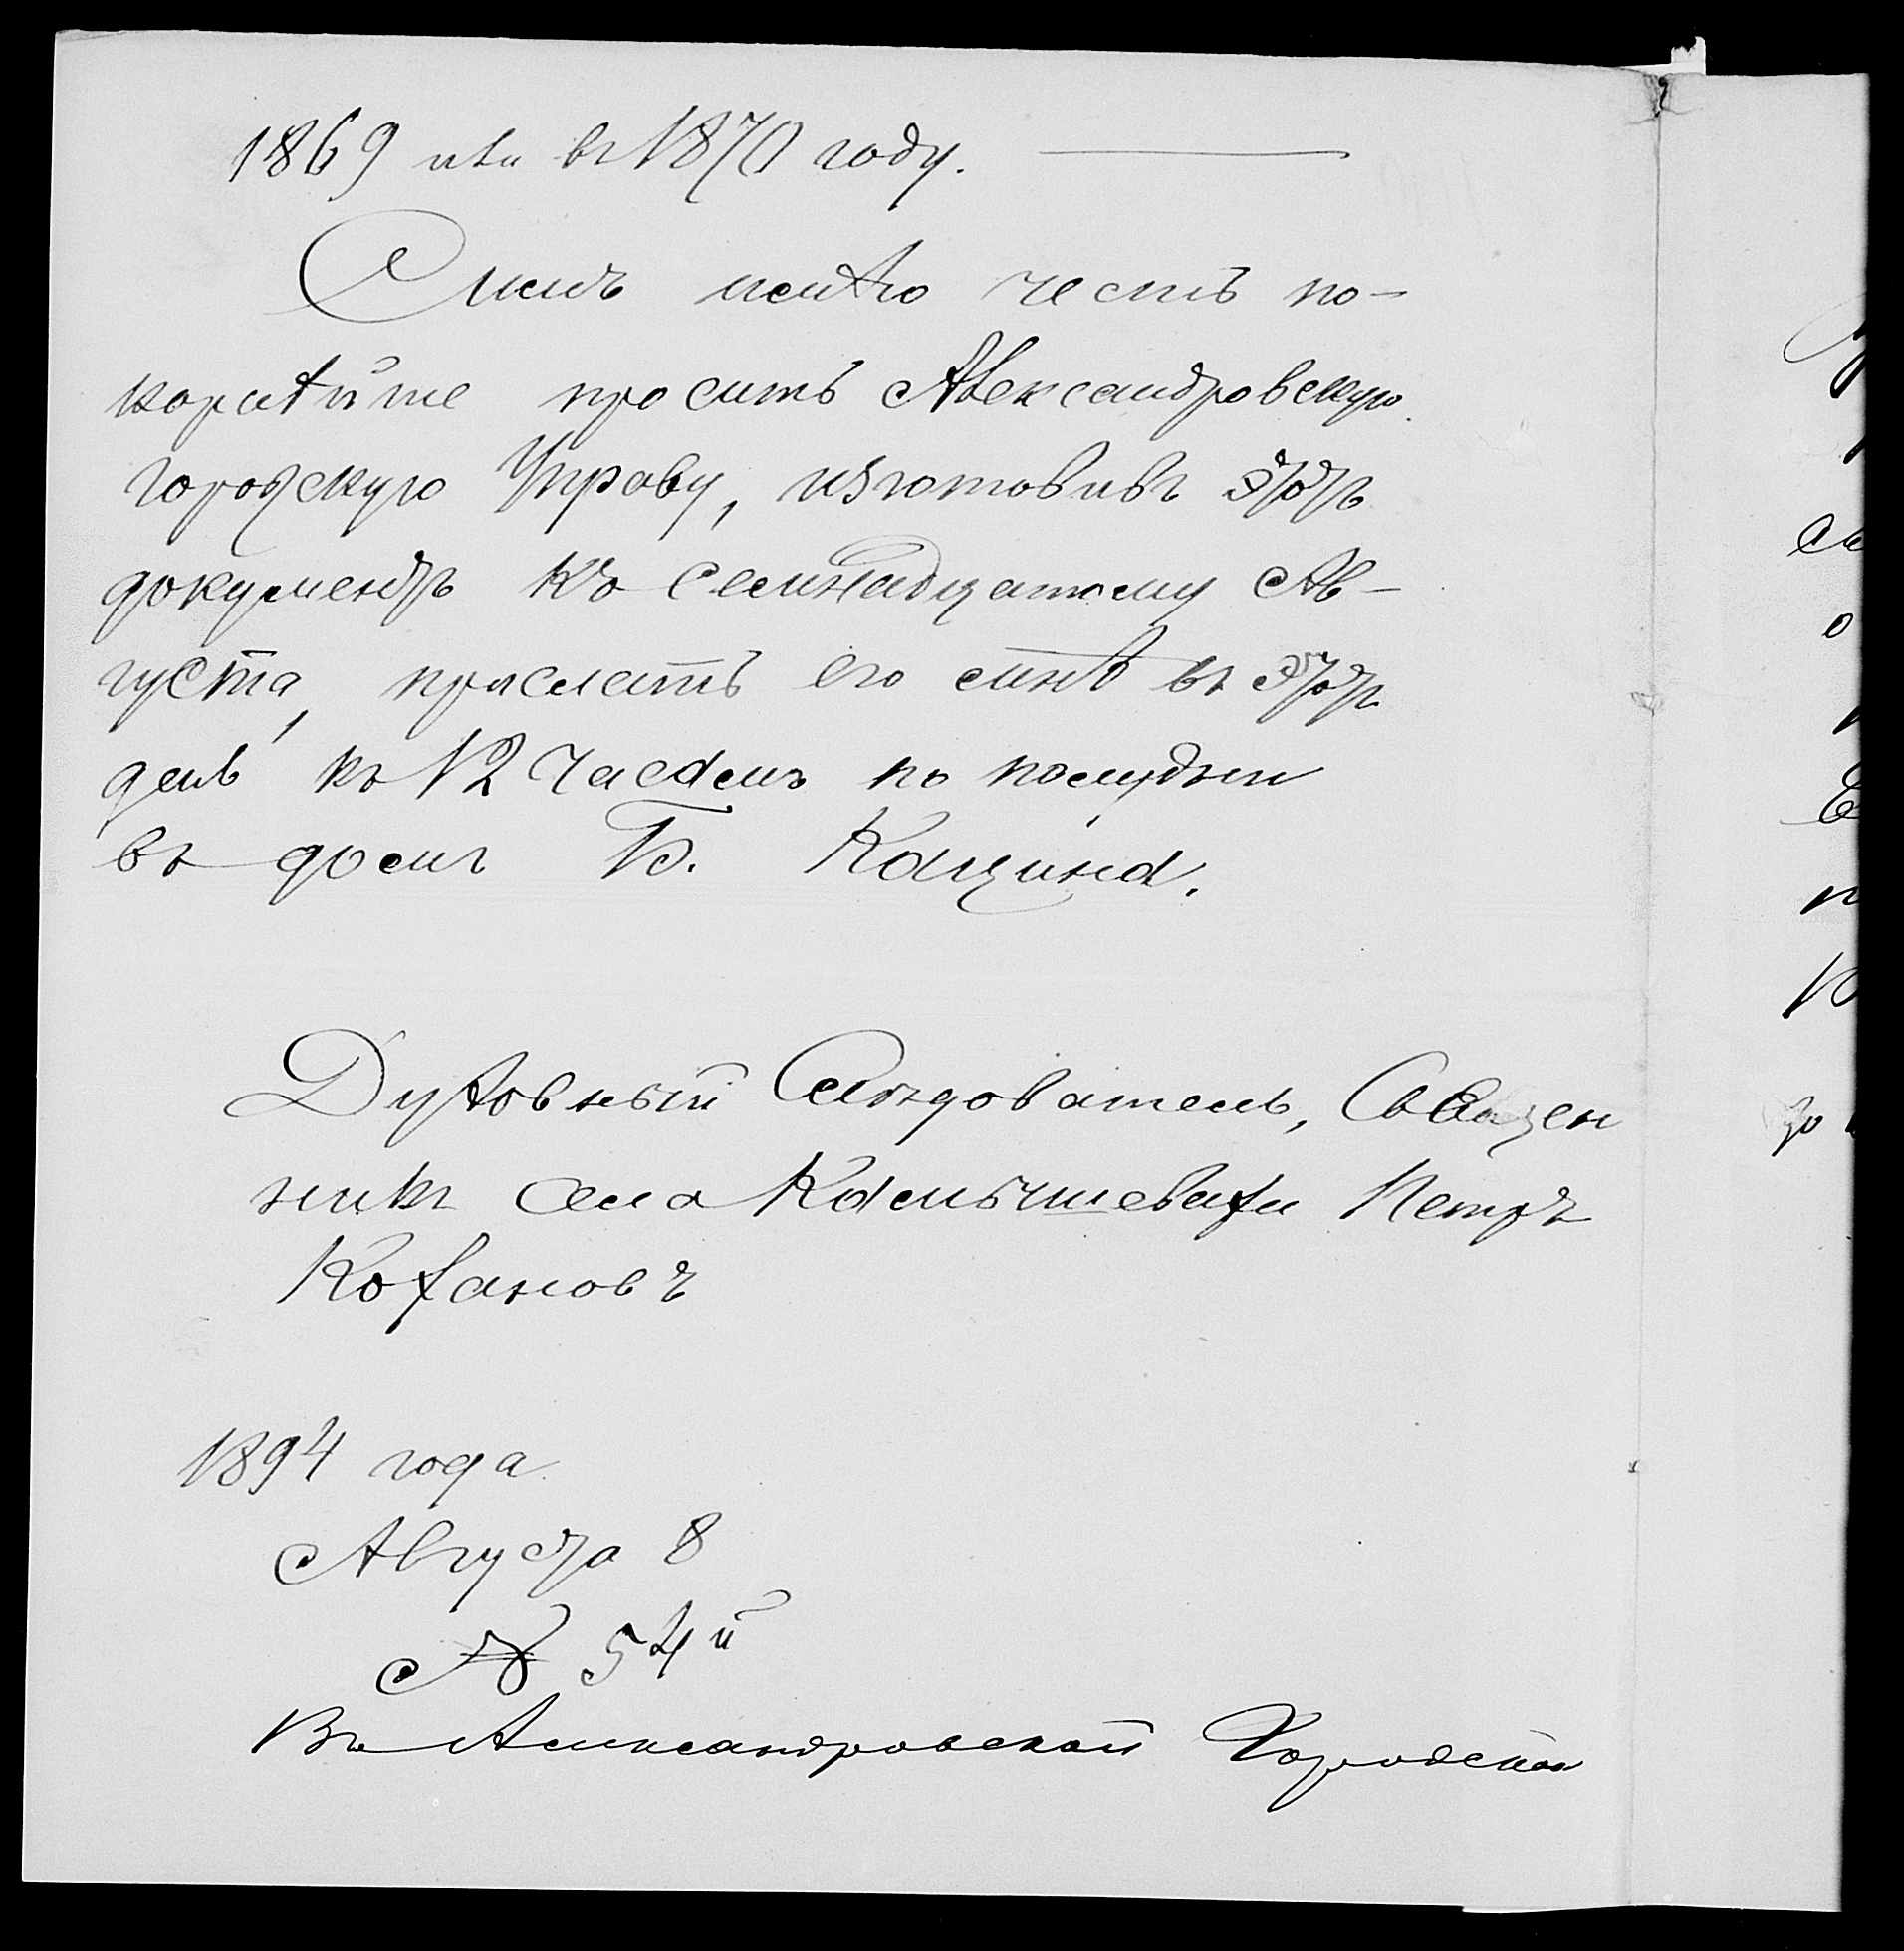 1869 или въ 1870 году.
Симъ имѣю честь по-
корнѣйше просить Александровскую
городскую Управу, изготовивъ этотъ
документъ къ семнадцатому Ав-
густа, прислать его мнѣ въ этотъ
день къ 12 часамъ по полудни
въ домъ Б. Кацина.
Духовный Слѣдователь, Священ
никъ села Камышевахи Петръ
Кохановъ
1894 года
Августа 8
№ 54й
Въ Александровской Городской